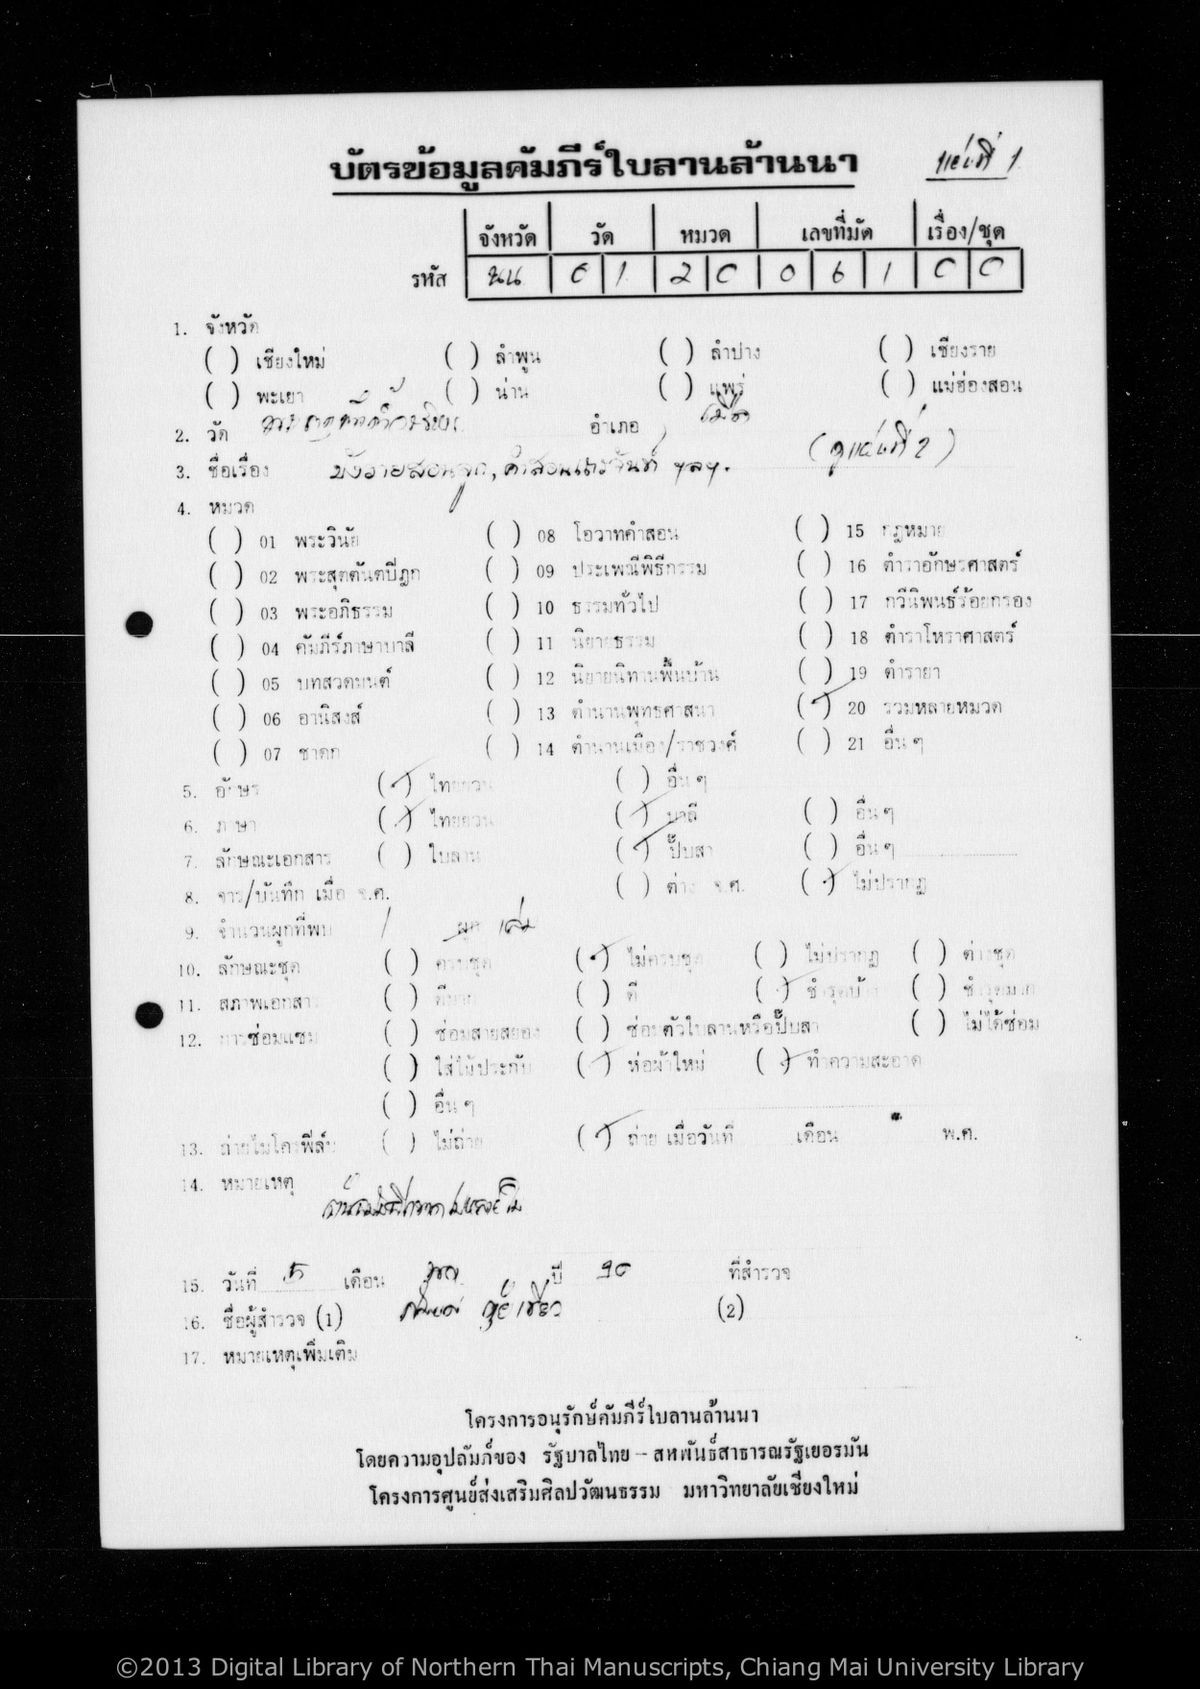 บัตรข้อมูลคัมภีร์ใบลานล้านนา
แผ่นที่ 1
จังหวัด วัด หมวด เลขที่มัด เรื่อง/ชุด
รหัส นน 01 20 061 00
1. จังหวัด
( ) เชียงใหม่ ( ) ลำพูน ( ) ลำปาง ( ) เชียงราย
( ) พะเยา ( ) น่าน ( ) แพร่ ( ) แม่ฮ่องสอน
2. วัด อำเภอ เมือง
3. ชื่อเรื่อง มังรายสอนลูก, คำสอนพระจันทร์ ฯลฯ. (ดูแผ่นที่ 2)
4. หมวด
( ) 01 พระวินัย ( ) 08 โอวาทคำสอน ( ) 15 กฎหมาย
( ) 02 พระสุตตันตปิฎก ( ) 09 ประเพณีพิธีกรรม ( ) 16 ตำราอักษรศาสตร์
( ) 03 พระอภิธรรม ( ) 10 ธรรมทั่วไป ( ) 17 กวีนิพนธ์ร้อยกรอง
( ) 04 คัมภีร์ภาษาบาลี ( ) 11 นิยายธรรม ( ) 18 ตำราโหราศาสตร์
( ) 05 บทสวดมนต์ ( ) 12 นิยายนิทานพื้นบ้าน ( ) 19 ตำรายา
( ) 06 อานิสงส์ ( ) 13 ตำนานพุทธศาสนา (✓) 20 รวมหลายหมวด
( ) 07 ชาดก ( ) 14 ตำนานเมือง/ราชวงศ์ ( ) 21 อื่น ๆ
5. อักษร (✓) ไทยยวน ( ) อื่น ๆ
6. ภาษา (✓) ไทยยวน (✓) บาลี ( ) อื่น ๆ
7. ลักษณะเอกสาร ( ) ใบลาน (✓) ปั๊บสา ( ) อื่น ๆ
8. จาร/บันทึก เมื่อ จ.ศ. ( ) ต่าง จ.ศ. (✓) ไม่ปรากฏ
9. จำนวนผูกที่พบ 1 ผูก เล่ม
10. ลักษณะชุด ( ) ครบชุด (✓) ไม่ครบชุด ( ) ไม่ปรากฏ ( ) ต่างชุด
11. สภาพเอกสาร ( ) ดีมาก ( ) ดี (✓) ชำรุดบ้าง ( ) ชำรุดมาก
12. การซ่อมแซม ( ) ซ่อมสายสยอง ( ) ซ่อมตัวใบลานหรือปั๊บสา ( ) ไม่ได้ซ่อม
( ) ใส่ไม้ประกับ (✓) ห่อผ้าใหม่ (✓) ทำความสะอาด
( ) อื่น ๆ
13. ถ่ายไมโครฟิล์ม ( ) ไม่ถ่าย (✓) ถ่าย เมื่อวันที่ เดือน พ.ศ.
14. หมายเหตุ
15. วันที่ 5 เดือน ปี 30 ที่สำรวจ
16. ชื่อผู้สำรวจ (1) (2)
17. หมายเหตุเพิ่มเติม
โครงการอนุรักษ์คัมภีร์ใบลานล้านนา
โดยความอุปถัมภ์ของ รัฐบาลไทย - สหพันธ์สาธารณรัฐเยอรมัน
โครงการศูนย์ส่งเสริมศิลปวัฒนธรรม มหาวิทยาลัยเชียงใหม่
©2013 Digital Library of Northern Thai Manuscripts, Chiang Mai University Library